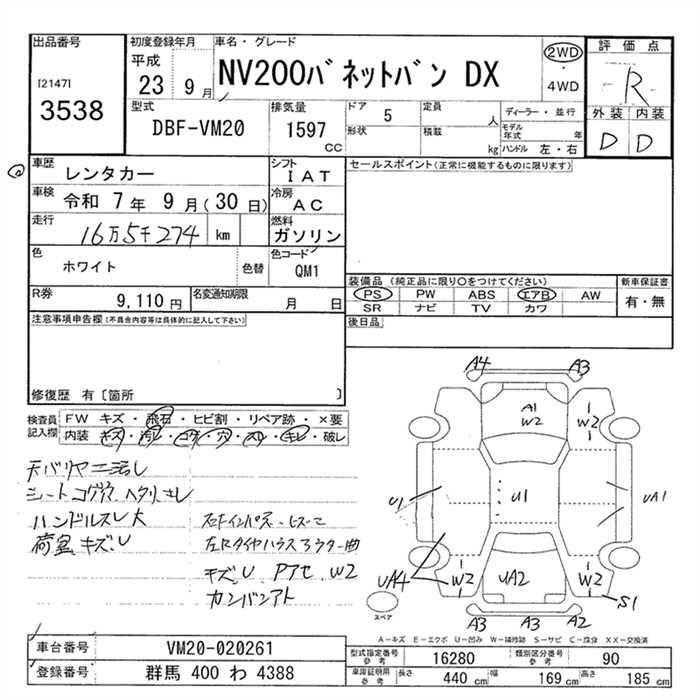 出品番号
[2147]
3538
初度登録年月
平成
23 9月
車名・グレード
NV200バネットバン DX
2WD
・
4WD
評価点
R
外装 内装
D D
型式
DBF-VM20
排気量
1597
CC
ドア 5
形状
定員 人
積載 kg
ディーラー・並行
モデル年式 年
ハンドル 左・右
車歴
レンタカー
シフト
IAT
セールスポイント(正常に機能するものに限ります)
車検
令和 7年 9月(30日)
冷房
AC
走行
16万5千274 km
燃料
ガソリン
色
ホワイト
色替
色コード
QM1
R券
9,110円
名変通知期限
月 日
装備品(純正品に限り○をつけてください)
新車保証書
PS PW ABS エアB AW
SR ナビ TV カワ
有・無
後日品
注意事項申告欄(不具合内容等は具体的に記入して下さい)
修復歴 有〔箇所 〕
検査員
記入欄
FW キズ・飛石・ヒビ割・リペア跡・×要
内装 キズ・汚レ・コゲ・穴・スレ・キレ・破レ
ハンドルスレ大
荷室キズ、U
キズ、U W2
カンバンアト
A4 A3
A1
W2
W2
U1
U1
UA1
UA4
W2
UA2
W2
S1
A3 A3 A2
スペア
A－キズ E－エクボ U－凹み W－補修跡 S－サビ C－腐食 XX－交換済
車台番号
VM20-020261
登録番号
群馬 400 わ 4388
型式指定番号
参考
16280
類別区分番号
参考
90
車庫証明用
参考
長さ 440 cm
幅 169 cm
高さ 185 cm